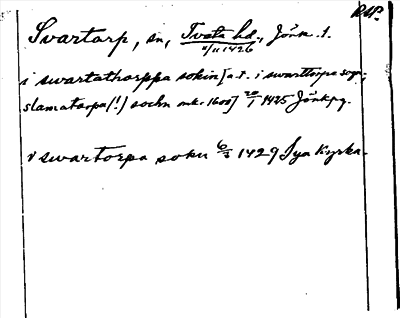 RAP.
Svartarp, sn, Tveta hd., Jönk. l.
11/11 1426
i swartathorppa sokin [a.t. i swarttorpa sogn;
slamatarpa (!) sochn omkr 1600] 20/1 1425 Jönkpg.
i swartorpa sokn 6/3 1429 Sya Kyrka.